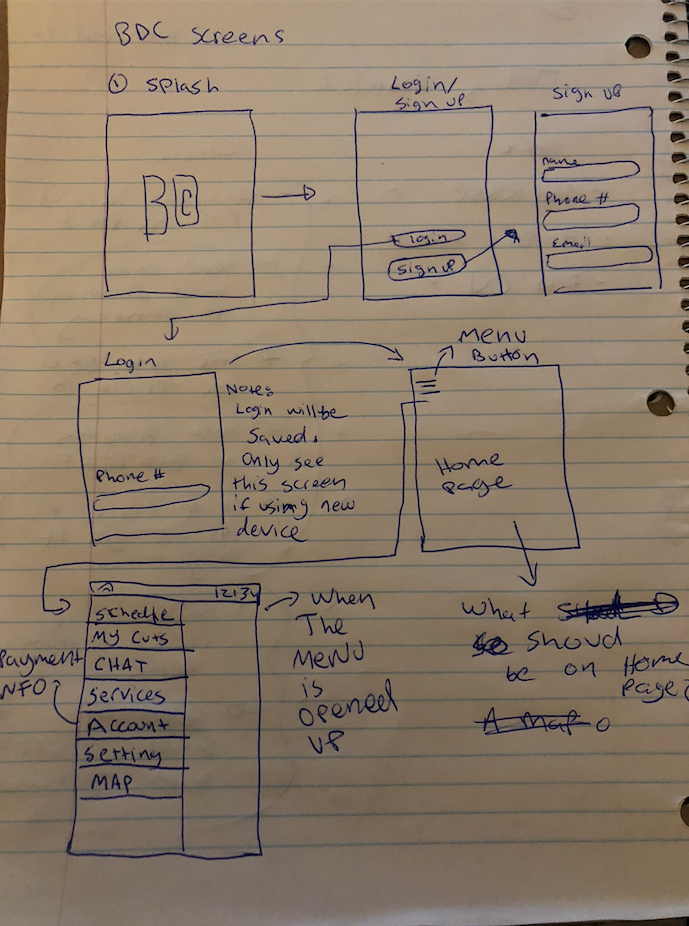 BDC screens
① splash
Login/
sign up
sign up
B C
Name
Phone #
Email
login
sign up
Login
Menu
Button
Note:
Login will be
Saved.
only see
this screen
if using new
device
Phone #
Home
page
12:34
schedle
My cuts
CHAT
services
Account
setting
MAP
Payment
NFO
when
The
Menu
is
opened
up
what
so shoud
be on Home
page?
A map